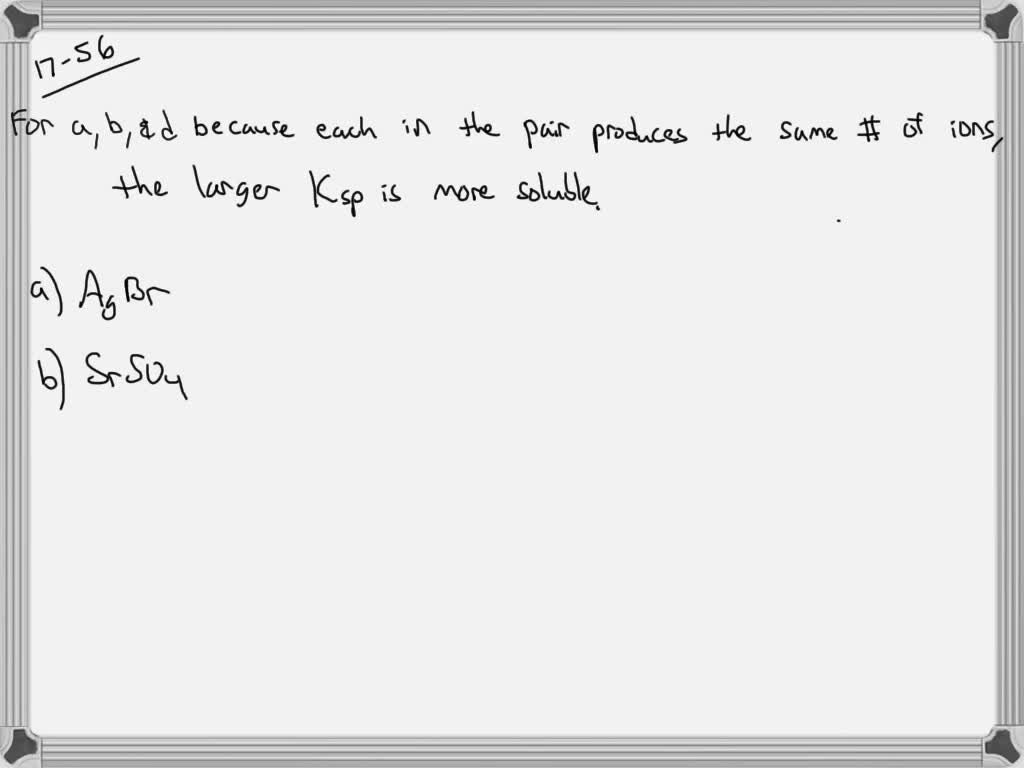 17-56
For a, b, & d because each in the pair produces the same # of ions,
the larger Ksp is more soluble.
a) AgBr
b) SrSO4